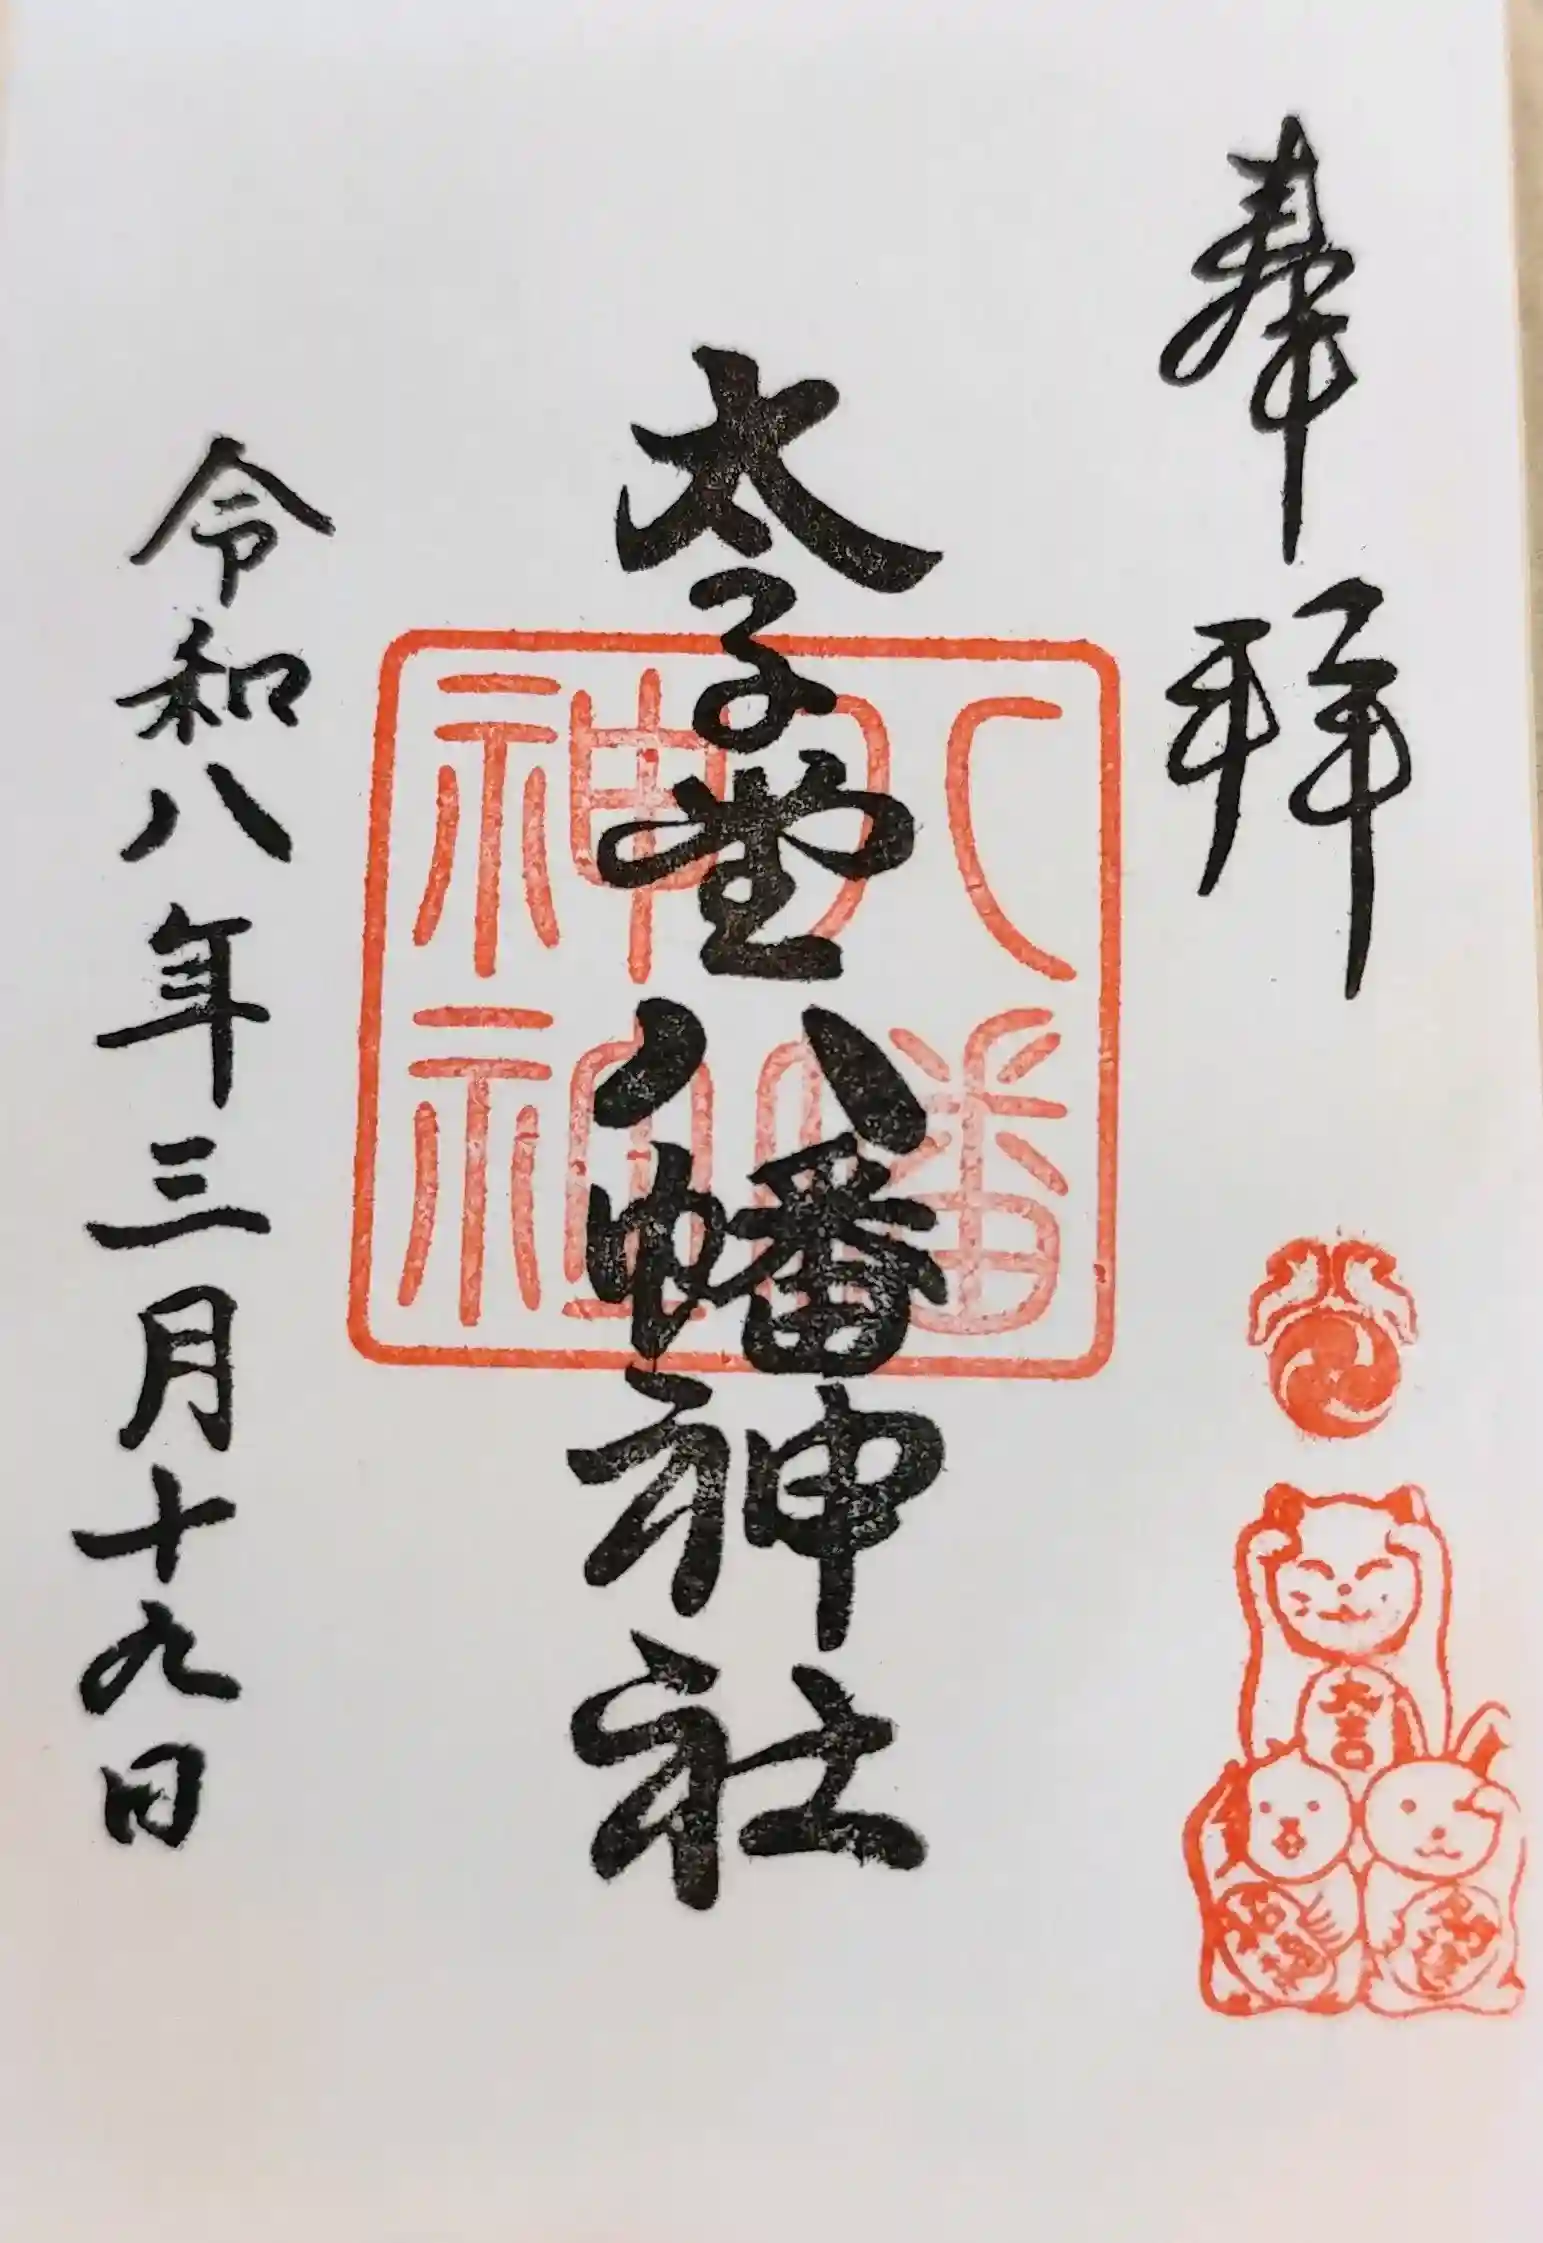 奉拝
太子堂八幡神社
八幡
神社
大吉
令和八年三月十九日